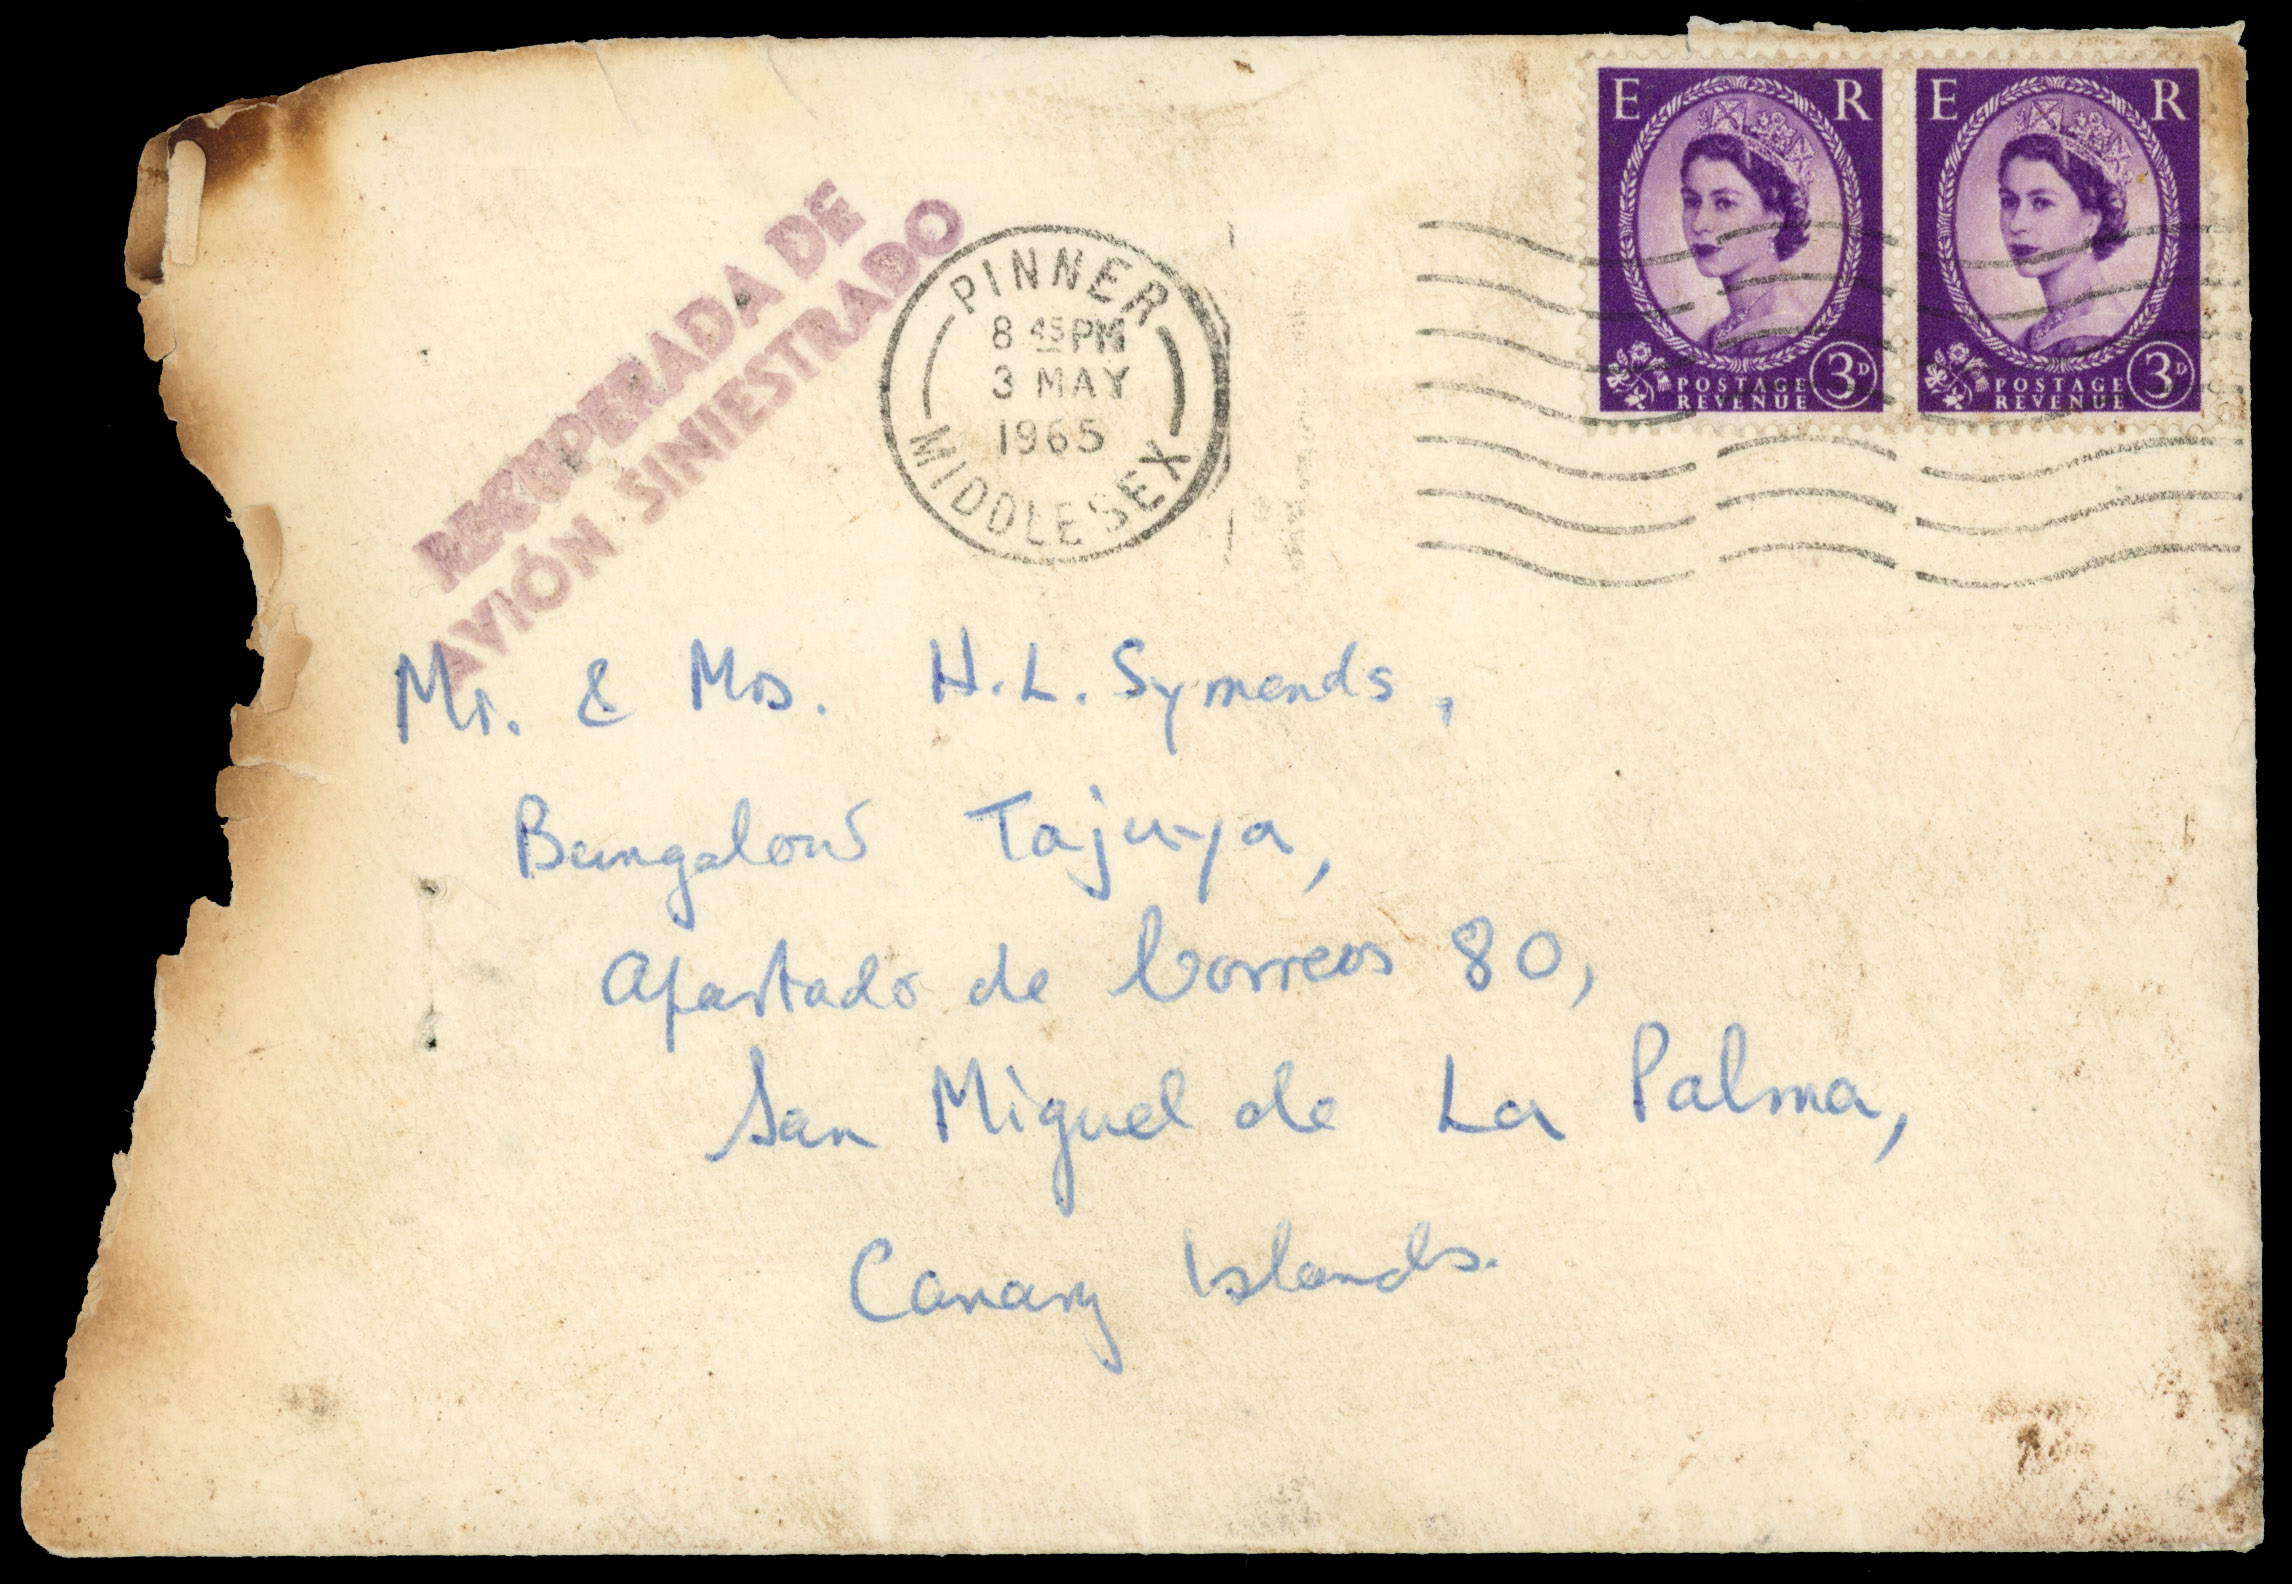 E R
E R
POSTAGE REVENUE 3D
POSTAGE REVENUE 3D
RECUPERADA DE
AVIÓN SINIESTRADO
PINNER
8 45 PM
3 MAY
1965
MIDDLESEX
Mr. & Mrs. H.L. Symonds,
Bungalow Tajuya,
Apartado de Correos 80,
San Miguel de La Palma,
Canary Islands.